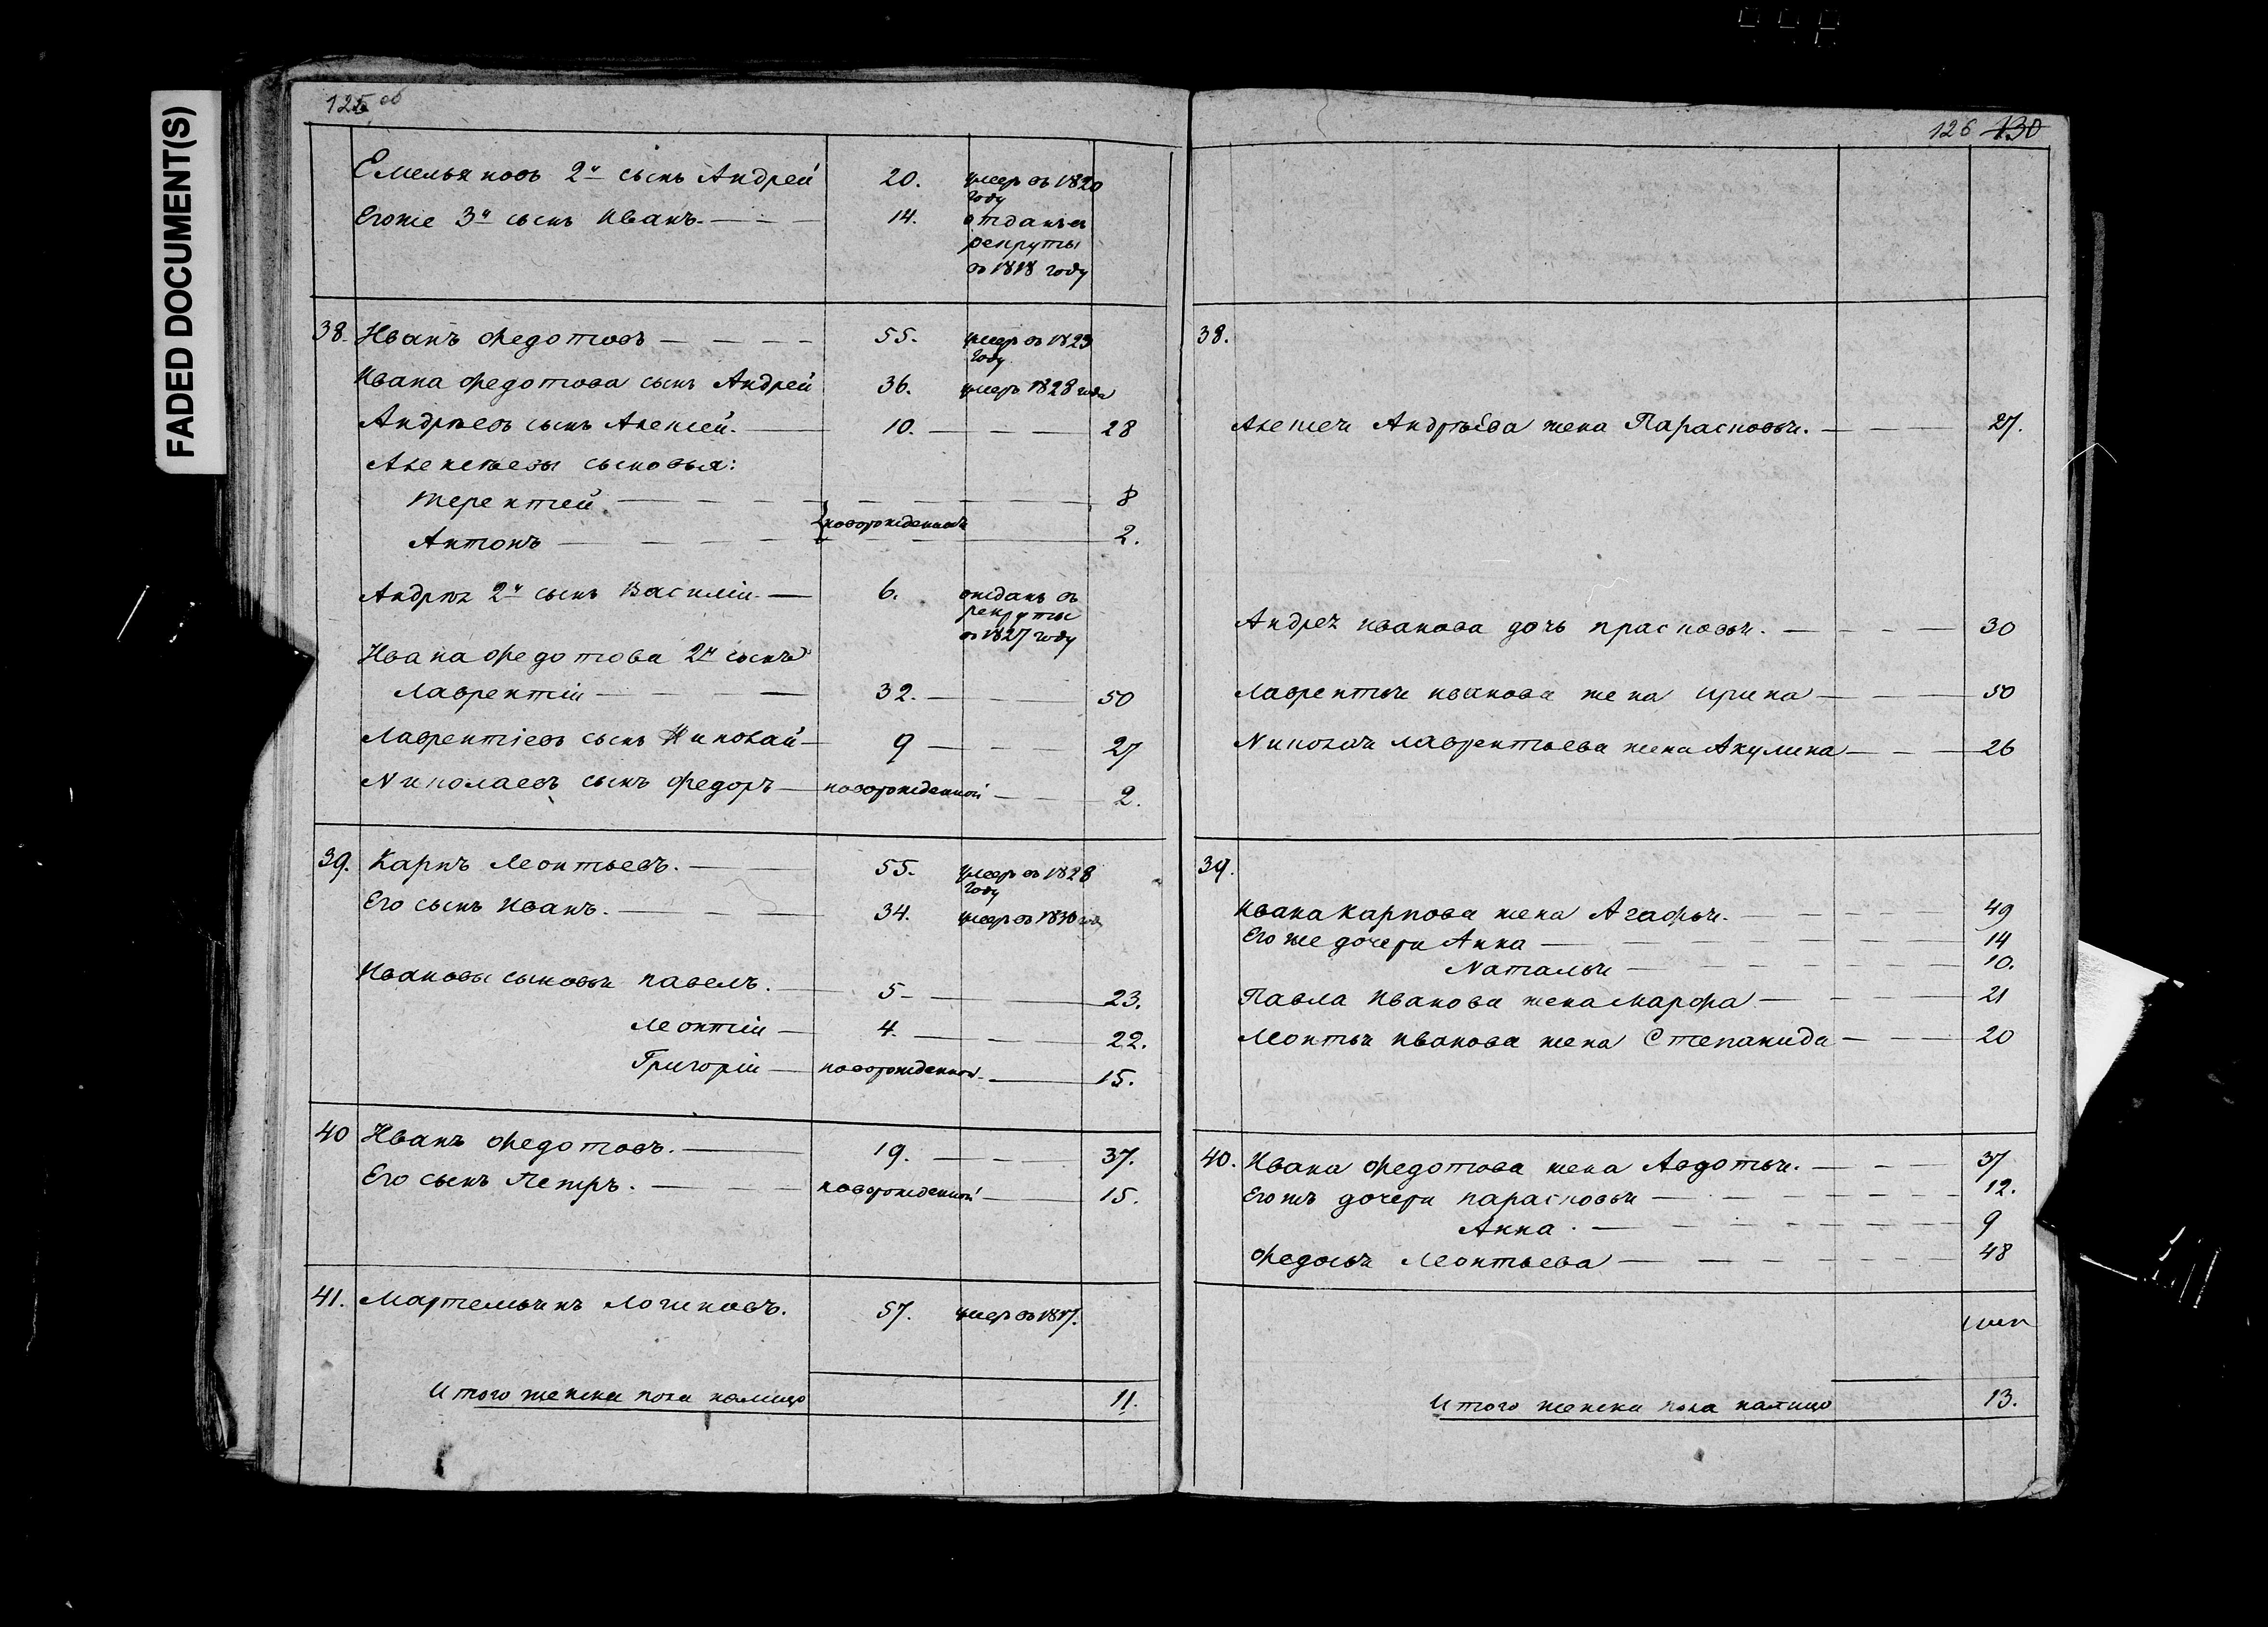 FADED DOCUMENT(S)
125 об
Емельяновъ 2й сынъ Андрей 20. умеръ въ 1820 году
Егоже 3й сынъ Иванъ. 14. отданъ въ рекруты въ 1818 году
38. Иванъ Федотовъ 55. умеръ въ 1823 году
Ивана Федотова сынъ Андрей 36. умеръ 1828 года
Андреевъ сынъ Алексей. 10. 28
Алексеевы сыновья:
Терентей 8
новорожденные
Антонъ 2.
Андрея 2й сынъ Василiи 6. отданъ въ рекруты въ 1827 году
Ивана Федотова 2й сынъ
Лаврентiи 32. 50
Лаврентiевъ сынъ Николай 9 27
Николаевъ сынъ Федоръ новорожденной 2.
39. Карпъ Леонтьевъ. 55. умеръ въ 1828 году
Его сынъ Иванъ. 34. умеръ въ 1830 году
Ивановы сыновья Павелъ. 5 23.
Леонтiи 4. 22.
Григорiи новорожденной 15.
40 Иванъ Федотовъ. 19. 37.
Его сынъ Петръ. новорожденной 15.
41. Мартемьянъ Логиновъ. 57. умеръ въ 1817.
Итого женска пола налицо 11.
126 130
38.
Алексея Андреева жена Парасковья. 27.
Андрея Иванова дочь Прасковья. 30
Лаврентья Иванова жена Ирина 50
Николая Лаврентьева жена Акулина 26
39.
Ивана Карпова жена Агафья. 49
Его же дочери Анна 14
Наталья 10.
Павла Иванова жена Марфа 21
Леонтья Иванова жена Степанида 20
40. Ивана Федотова жена Авдотья. 37
Егожъ дочери Парасковья 12.
Анна. 9
Федосья Леонтьева 48
Итого женска пола налицо 13.